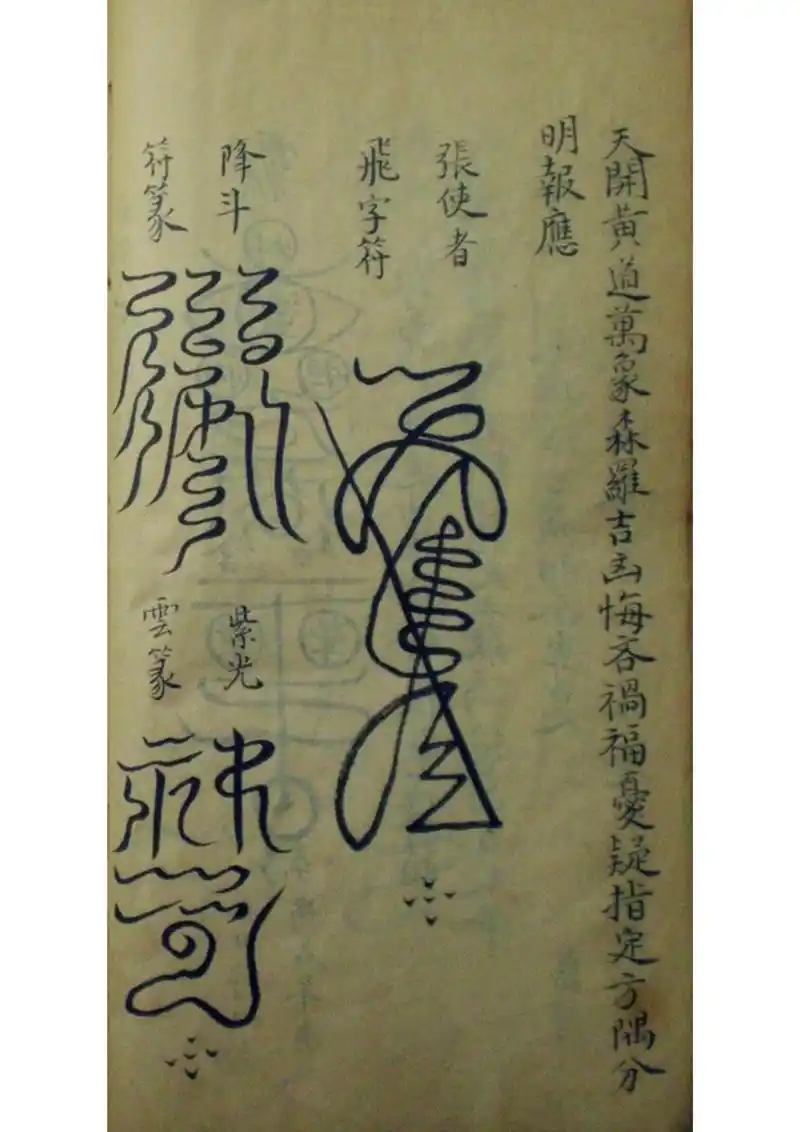 天開黃道萬象森羅吉凶悔吝禍福憂疑指定方隅分
明報應
張使者
飛字符
降斗
符篆
紫光
雲篆